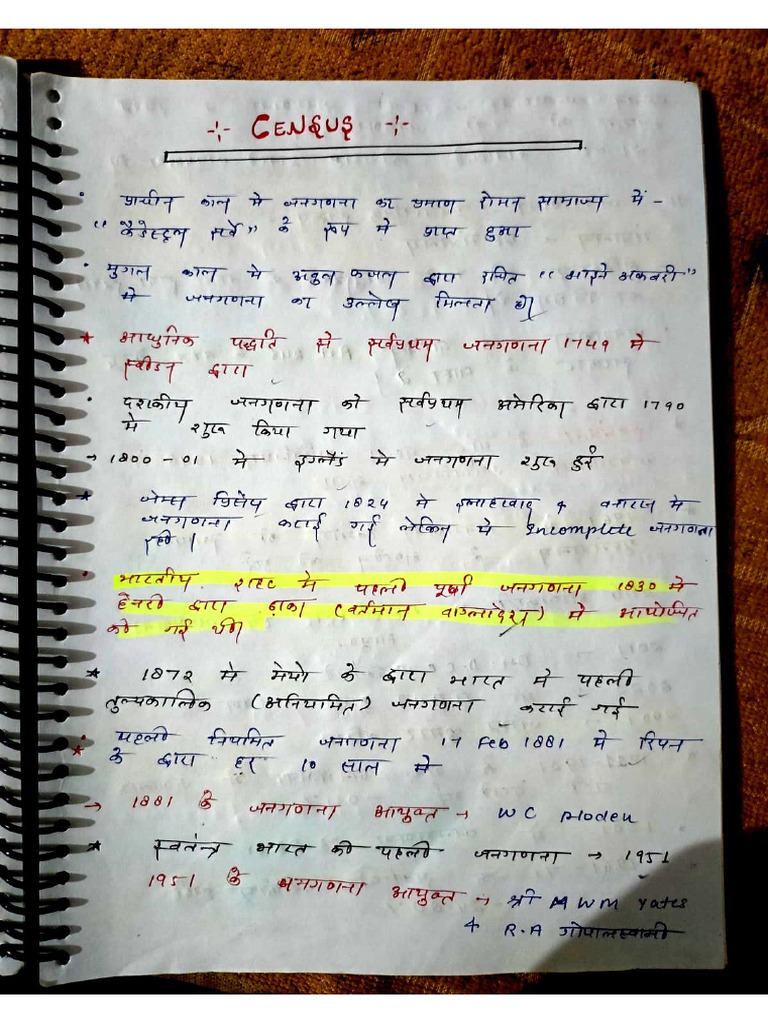 -:- CENSUS -:-
• प्राचीन काल मे जनगणना का प्रमाण रोमन साम्राज्य में -
" कैडेस्ट्रल सर्वे" के रूप मे प्राप्त हुआ
• मुगल काल मे अबुल फजल द्वारा रचित " आइने अकबरी"
मे जनगणना का उल्लेख मिलता है।
* आधुनिक पद्धति से सर्वप्रथम जनगणना 1749 मे
स्वीडन द्वारा
• दशकीय जनगणना को सर्वप्रथम अमेरिका द्वारा 1790
मे शुरू किया गया
→ 1800-01 मे इग्लैंड मे जनगणना शुरू हुई
* जेम्स प्रिंसेप द्वारा 1824 मे इलाहाबाद & बनारस मे
जनगणना कराई गई लेकिन ये Incomplete जनगणना
रही।
• भारतीय शहर मे पहली पूर्ण जनगणना 1830 मे
हेनरी द्वारा ढाका (वर्तमान बांग्लादेश) मे आयोजित
की गई थी।
* 1872 मे मेयो के द्वारा भारत मे पहली
तुल्यकालिक (अनियामित) जनगणना कराई गई
* पहली नियमित जनगणना 17 Feb 1881 मे रिपन
के द्वारा हर 10 साल मे
→ 1881 के जनगणना आयुक्त → WC Moden
* स्वतंन्त्र भारत की पहली जनगणना → 1951
1951 के जनगणना आयुक्त → श्री MWM Yates
& R.A गोपालस्वामी